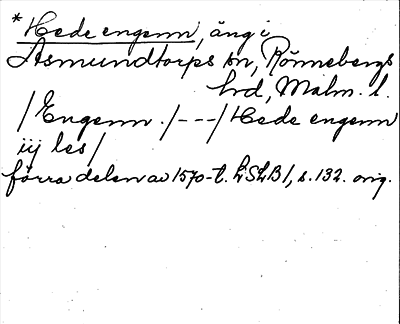 * Hede engenn, äng i
Asmundtorps sn, Rönnebergs
hrd, Malm. l.
/Engenn./---/Hede engenn
iij les/
förra delen av 1570-t. LSLB1, s. 132. orig.